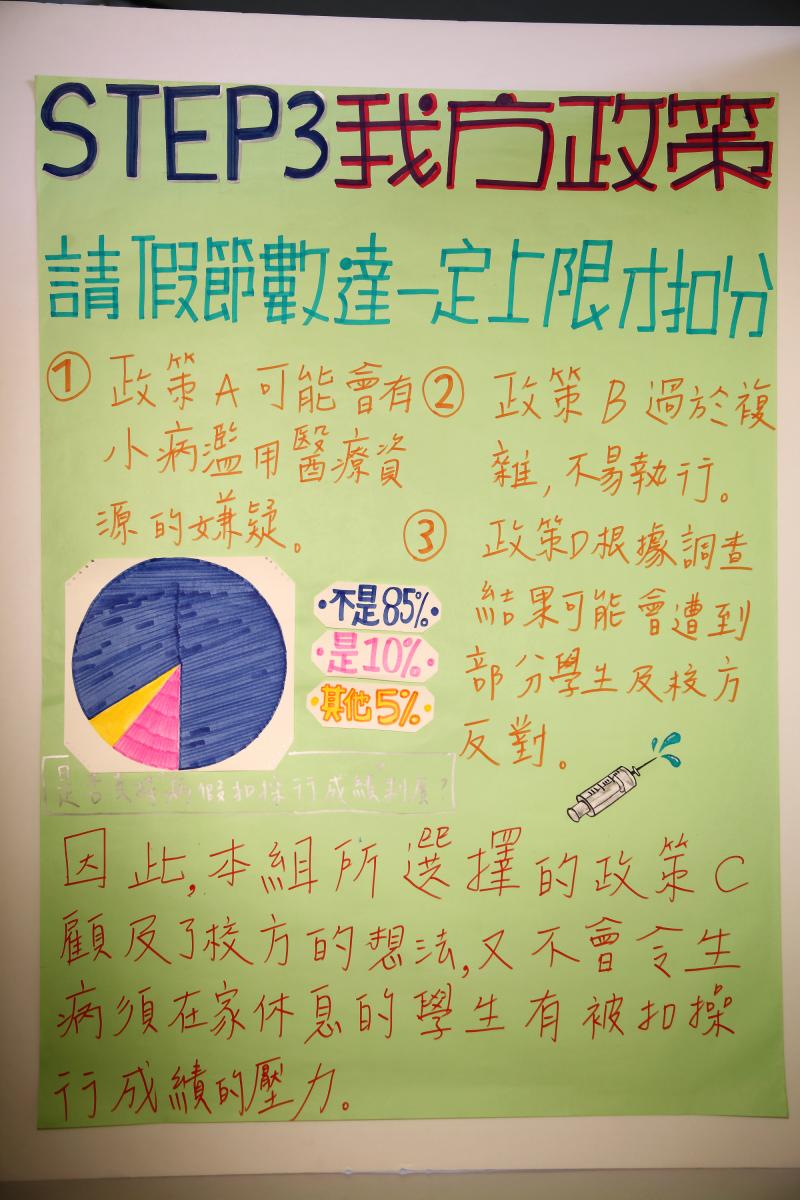 STEP3我方政策
請假節數達一定上限才扣分
① 政策A可能會有
小病濫用醫療資
源的嫌疑。
② 政策B過於複
雜,不易執行。
③ 政策D根據調查
結果可能會遭到
部分學生及校方
反對。
不是85%
是10%
其他5%
因此,本組所選擇的政策C
顧及了校方的想法,又不會令生
病須在家休息的學生有被扣操
行成績的壓力。